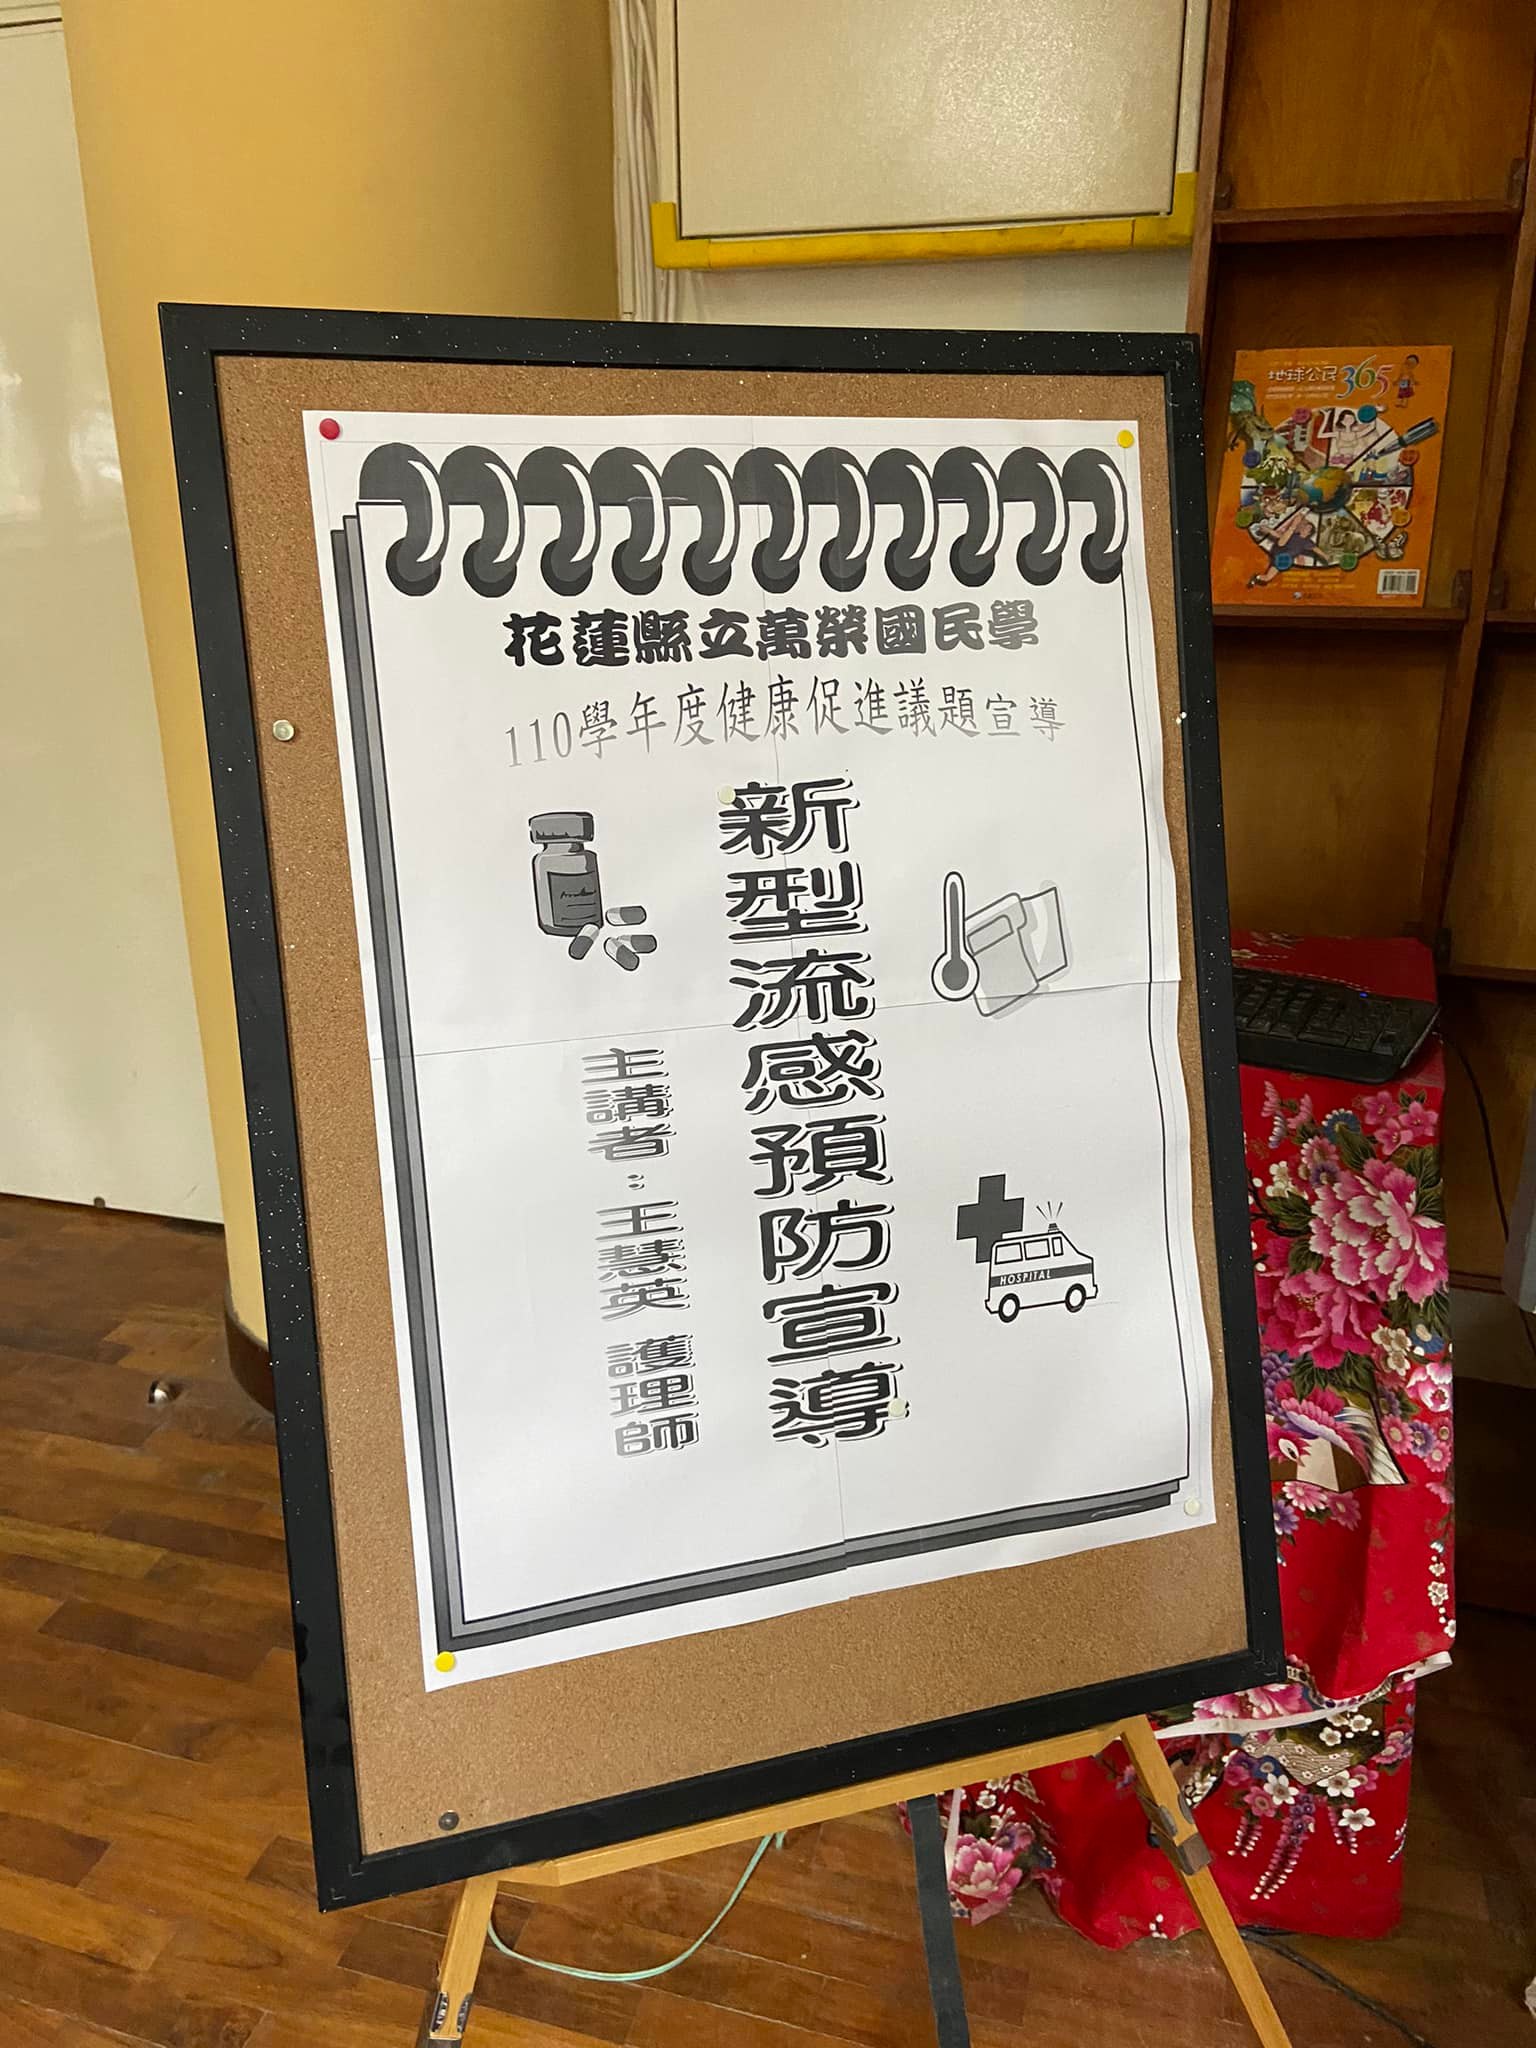 花蓮縣立萬榮國民學
110學年度健康促進議題宣導
新型流感預防宣導
主講者：王慧英 護理師
HOSPITAL
地球公民365